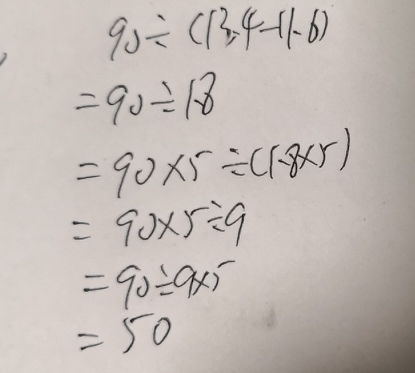 90÷(13.4-11.6)
=90÷1.8
=90×5÷(1.8×5)
=90×5÷9
=90÷9×5
=50